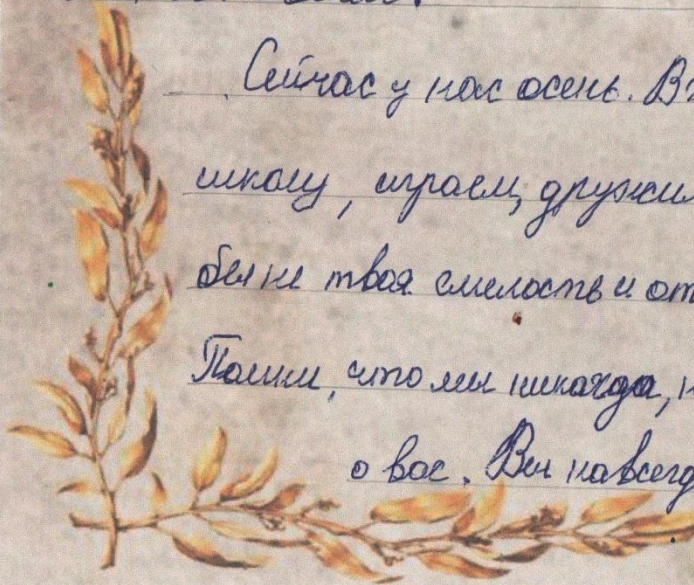 Сейчас у нас осень. В
школу, играем, дружим
бы не твоя смелость и от
Помни, что мы никогда, н
о вас. Вы навсегд